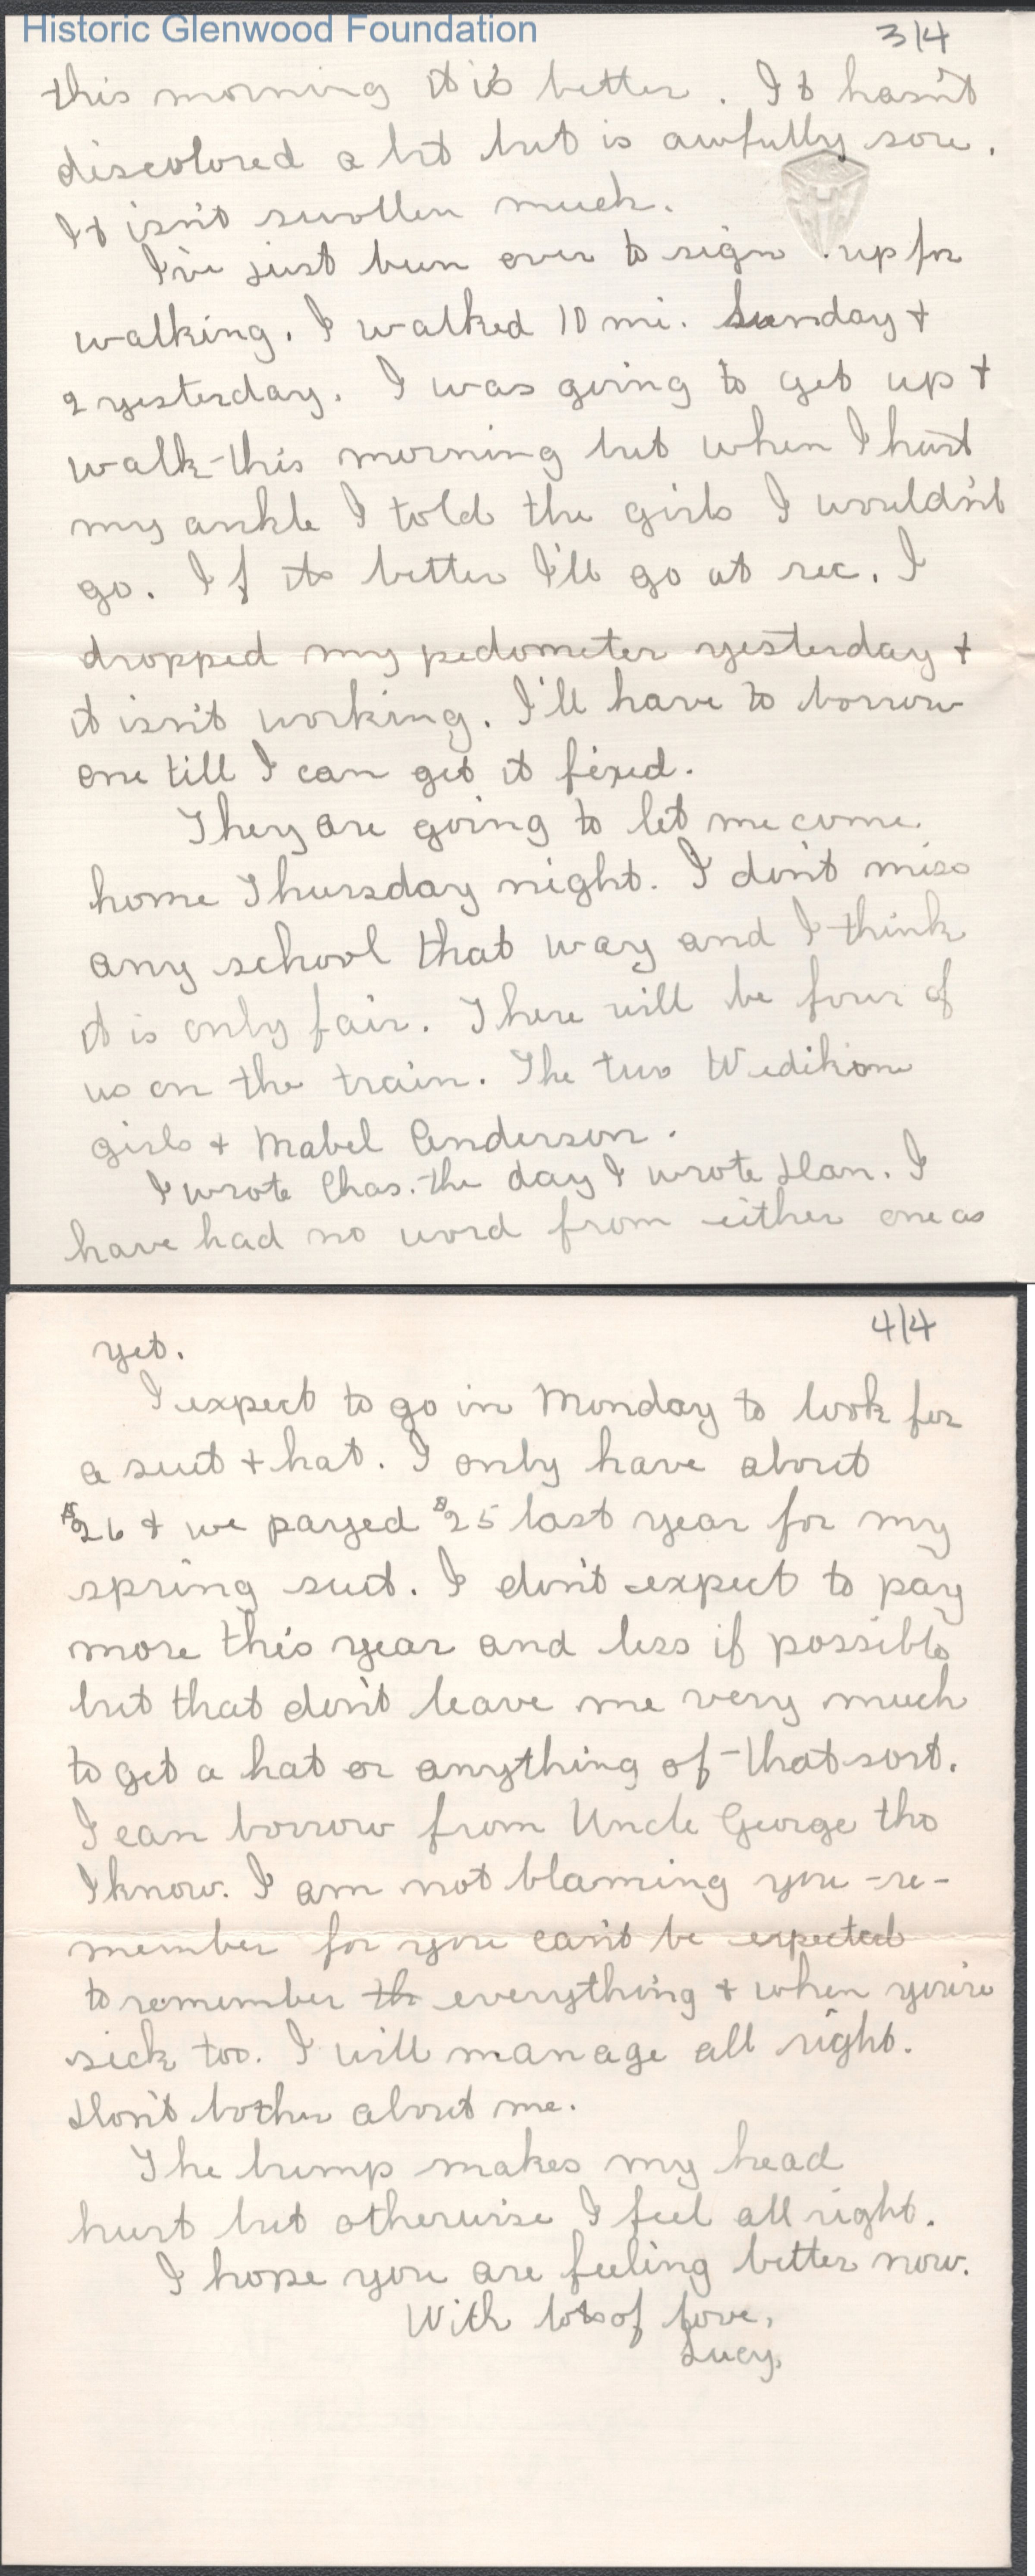 Historic Glenwood Foundation
3/4
this morning it is better. It hasn't
discolored a bit but is awfully sore.
It isn't swollen much.
I've just been over to sign up for
walking. I walked 10 mi. Sunday +
2 yesterday. I was going to get up +
walk this morning but when I hurt
my ankle I told the girls I wouldn't
go. If its better I'll go at rec. I
dropped my pedometer yesterday +
it isn't working. I'll have to borrow
one till I can get it fixed.
They are going to let me come
home Thursday night. I don't miss
any school that way and I think
it is only fair. There will be four of
us on the train. The two
girls + Mabel Anderson.
I wrote Chas. the day I wrote Dan. I
have had no word from either one as
4/4
yet.
I expect to go in Monday to look for
a suit + hat. I only have about
$26 + we payed $25 last year for my
spring suit. I don't expect to pay
more this year and less if possible
but that don't leave me very much
to get a hat or anything of that sort.
I can borrow from Uncle George tho
I know. I am not blaming you -re-
member for you can't be expected
to remember th everything + when you're
sick too. I will manage all right.
Don't bother about me.
The bump makes my head
hurt but otherwise I feel all right.
I hope you are feeling better now.
With lots of love,
Lucy.